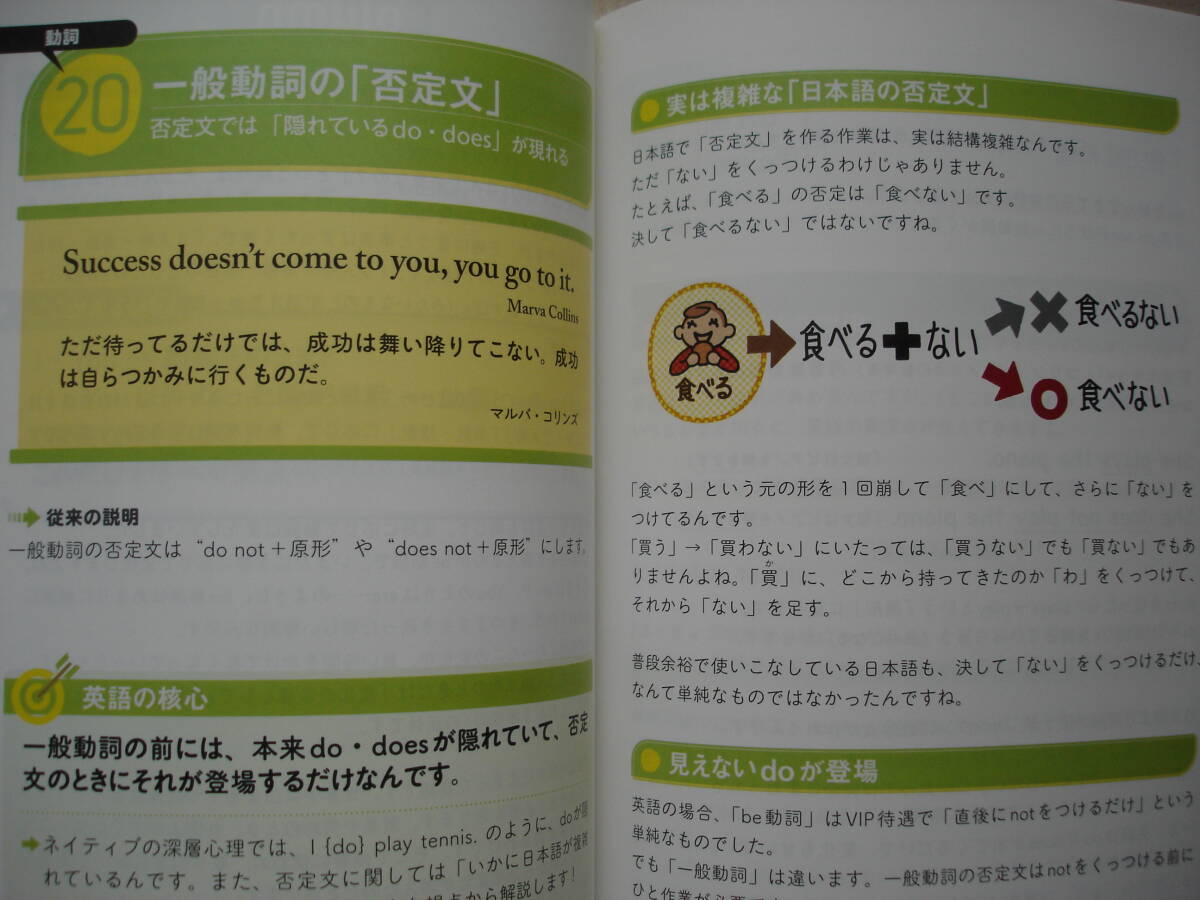 動詞
20
一般動詞の「否定文」
否定文では「隠れているdo・does」が現れる
Success doesn't come to you, you go to it.
Marva Collins
ただ待ってるだけでは、成功は舞い降りてこない。成功
は自らつかみに行くものだ。
マルバ・コリンズ
従来の説明
一般動詞の否定文は“do not＋原形”や“does not＋原形”にします。
英語の核心
一般動詞の前には、本来do・doesが隠れていて、否定
文のときにそれが登場するだけなんです。
ネイティブの深層心理では、I {do} play tennis. のように、doが隠
れているんです。また、否定文に関しては「いかに日本語が複雑
から解説します！
実は複雑な「日本語の否定文」
日本語で「否定文」を作る作業は、実は結構複雑なんです。
ただ「ない」をくっつけるわけじゃありません。
たとえば、「食べる」の否定は「食べない」です。
決して「食べるない」ではないですね。
食べる
食べる＋ない
×食べるない
○食べない
「食べる」という元の形を1回崩して「食べ」にして、さらに「ない」を
つけてるんです。
「買う」→「買わない」にいたっては、「買うない」でも「買ない」でもあ
か
りませんよね。「買」に、どこから持ってきたのか「わ」をくっつけて、
それから「ない」を足す。
普段余裕で使いこなしている日本語も、決して「ない」をくっつけるだけ、
なんて単純なものではなかったんですね。
見えないdoが登場
英語の場合、「be動詞」はVIP待遇で「直後にnotをつけるだけ」という
単純なものでした。
でも「一般動詞」は違います。一般動詞の否定文はnotをくっつける前に
ひと作業が必要です